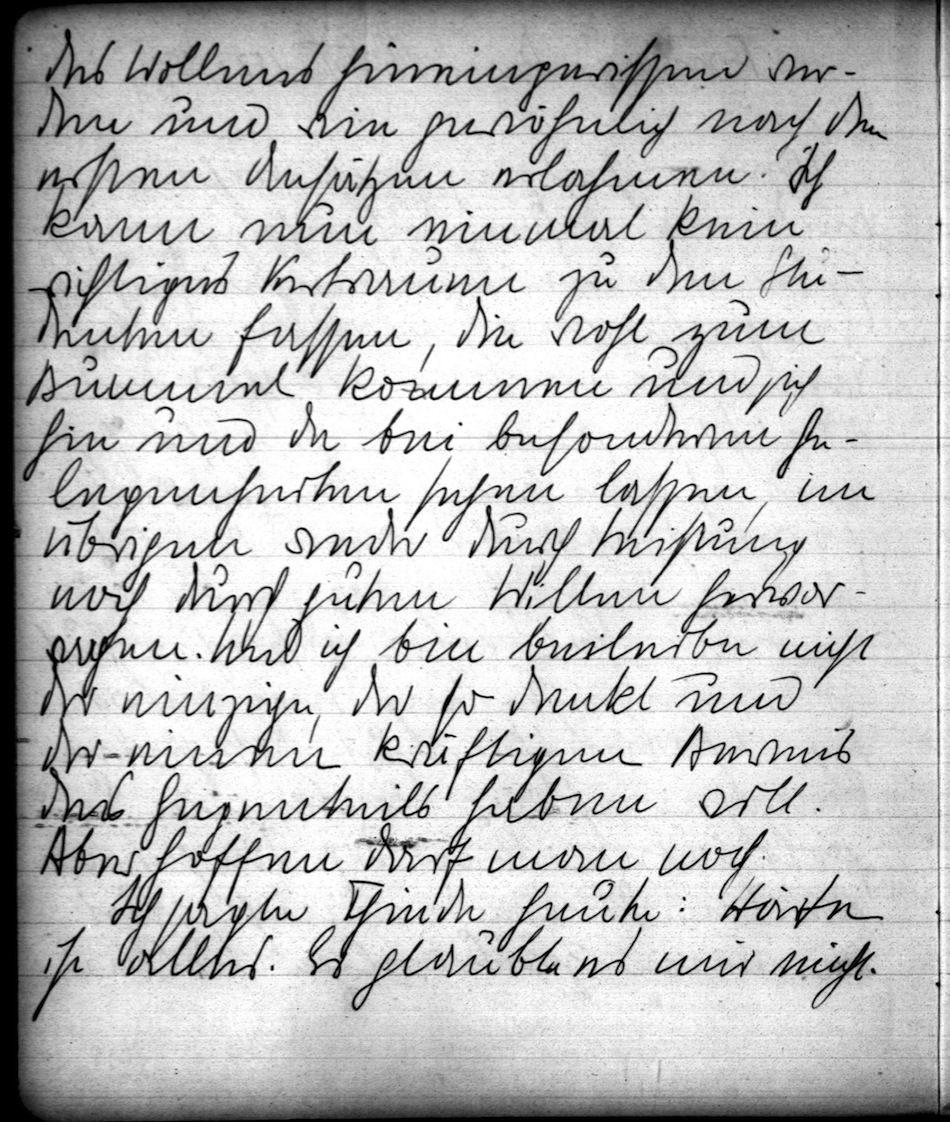 des Wollens hineingerissen wer-
den und wie gewöhnlich nach den
ersten Ansätzen erlahmen. Ich
kann nun einmal kein
richtiges Vertrauen zu den Stu-
denten fassen, die wohl zum
Bummel kommen und sich
hin und da bei besonderen Ge-
legenheiten sehen lassen, im
übrigen weder durch Leistung
noch durch guten Willen hervor-
ragen. Und ich bin beileibe nicht
der einzige, der so denkt und
der einen kräftigen Beweis
des Gegenteils haben will.
Aber hoffen darf man noch.
Ich sagte heute: Härte
ist alles. Er glaubte es mir nicht.